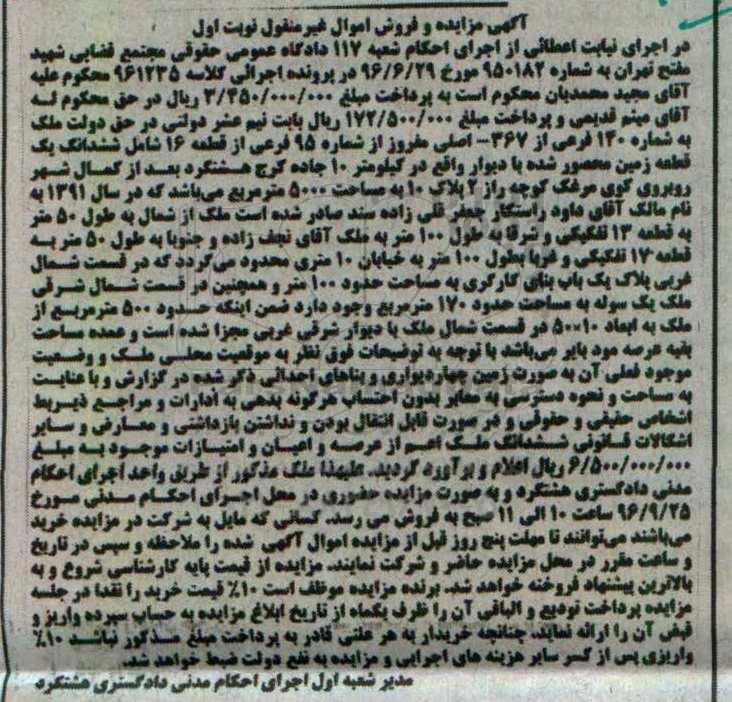 آگهی مزایده و فروش اموال غیرمنقول نوبت اول
در اجرای نیابت اعطائی از اجرای احکام شعبه ۱۱۷ دادگاه عمومی حقوقی مجتمع قضایی شهید
مفتح تهران به شماره ۹۵۰۱۸۲ مورخ ۹۶/۶/۲۹ در پرونده اجرائی کلاسه ۹۶۱۲۳۵ محکوم علیه
آقای مجید محمدیان محکوم است به پرداخت مبلغ ۳/۴۵۰/۰۰۰/۰۰۰ ریال در حق محکوم لـه
آقای میثم قدیمی و پرداخت مبلغ ۱۷۲/۵۰۰/۰۰۰ ریال بابت نیم عشر دولتی در حق دولت ملک
به شماره ۱۴۰ فرعی از ۳۶۷- اصلی مفروز از شماره ۹۵ فرعی از قطعه ۱۶ شامل ششدانگ یک
قطعه زمین محصور شده با دیوار واقع در کیلومتر ۱۰ جاده کرج هشتگرد بعد از کمال شهر
روبروی کوی مرغک کوچه راز ۲ پلاک ۱۰ به مساحت ۵۰۰۰ مترمربع می‌باشد که در سال ۱۳۹۱ به
نام مالک آقای داود راستکار جعفر قلی زاده سند صادر شده است ملک از شمال به طول ۵۰ متر
به قطعه ۱۳ تفکیکی و شرقا به طول ۱۰۰ متر به ملک آقای نجف زاده و جنوبا به طول ۵۰ متر به
قطعه ۱۷ تفکیکی و غربا بطول ۱۰۰ متر به خیابان ۱۰ متری محدود می‌گردد که در قسمت شمال
غربی پلاک یک باب بنای کارگری به مساحت حدود ۱۰۰ متر و همچنین در قسمت شمال شرقی
ملک یک سوله به مساحت حدود ۱۷۰ مترمربع وجود دارد ضمن اینکه حدود ۵۰۰ مترمربع از
ملک به ابعاد ۱۰*۵۰ در قسمت شمال ملک با دیوار شرقی غربی مجزا شده است و عمده مساحت
بقیه عرصه مود بایر می‌باشد با توجه به توضیحات فوق نظر به موقعیت محلی ملک و وضعیت
موجود فعلی آن به صورت زمین چهاردیواری و بناهای احداثی ذکر شده در گزارش و با عنایت
به مساحت و نحوه دسترسی به معابر بدون احتساب هرگونه بدهی به ادارات و مراجع ذیربط
اشخاص حقیقی و حقوقی و در صورت قابل انتقال بودن و نداشتن بازداشتی و معارض و سایر
اشکالات قانونی ششدانگ ملک اعم از عرصه و اعیان و امتیازات موجود به مبلغ
۶/۵۰۰/۰۰۰/۰۰۰ ریال اعلام و برآورد گردید. علیهذا ملک مذکور از طریق واحد اجرای احکام
مدنی دادگستری هشتگرد و به صورت مزایده حضوری در محل اجرای احکام مدنی مورخ
۹۶/۹/۲۵ ساعت ۱۰ الی ۱۱ صبح به فروش می رسد. کسانی که مایل به شرکت در مزایده خرید
می‌باشند می‌توانند تا مهلت پنج روز قبل از مزایده اموال آگهی شده را ملاحظه و سپس در تاریخ
و ساعت مقرر در محل مزایده حاضر و شرکت نمایند. مزایده از قیمت پایه کارشناسی شروع و به
بالاترین پیشنهاد فروخته خواهد شد. برنده مزایده موظف است ۱۰٪ قیمت خرید را نقدا در جلسه
مزایده پرداخت تودیع و الباقی آن را ظرف یکماه از تاریخ ابلاغ مزایده به حساب سپرده واریز و
قبض آن را ارائه نماید. چنانچه خریدار به هر علتی قادر به پرداخت مبلغ مذکور نباشد ۱۰٪
واریزی پس از کسر سایر هزینه های اجرایی و مزایده به نفع دولت ضبط خواهد شد.
مدیر شعبه اول اجرای احکام مدنی دادگستری هشتگرد